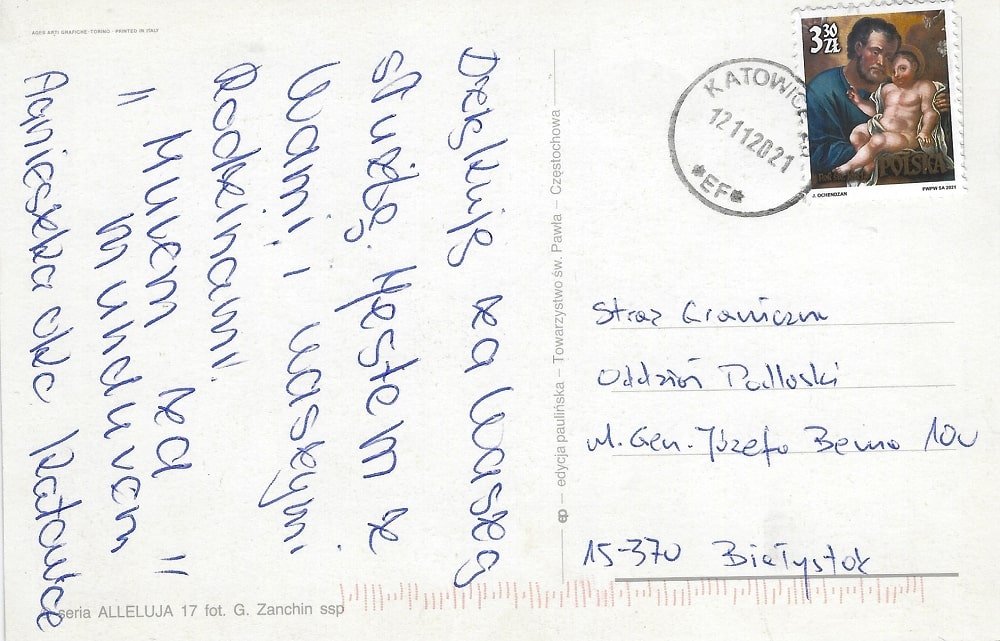 AGES ARTI GRAFICHE · TORINO · PRINTED IN ITALY
Dziękuję za Waszą
służbę. Jestem z
Wami i waszymi
Rodzinami.
"Murem za
mundurem"
Agnieszka Katowice
seria ALLELUJA 17 fot. G. Zanchin ssp
ep – edycja paulińska – Towarzystwo św. Pawła – Częstochowa
KATOWICE
12 11 2021
*EF*
3 30 ZŁ
POLSKA
J. OCHENDZAN
PWPW SA 2021
Straż Graniczna
Oddział Podlaski
ul. Gen. Józefa Bema 100
15-370 Białystok